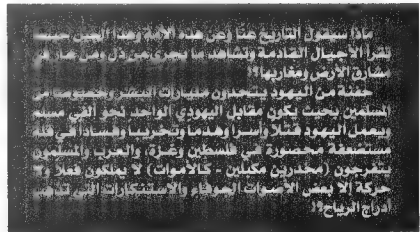 ماذا سيقول التاريخ عنا وعن هذه الأمة وهذا الجيل حينما
تقرأ الأجيال القادمة وتشاهد ما يجري من ذل وهن
مشارق الأرض ومغاربها؟!
حفنة من اليهود يتحدون مليارات البشر وخصوصا من
المسلمين بحيث يكون مقابل اليهودي الواحد نحو ألفي مسلم
ويعمل اليهود قتلا وأسرا وهدما وتخريبا وفسادا في قلة
مستضعفة محصورة في فلسطين وغزة، والعرب والمسلمون
يتفرجون (مخدرين مكبلين - كالأموات) لا يملكون فعلا ولا
حركة إلا بعض الأصوات الجوفاء والاستنكارات التي تذهب
أدراج الرياح؟!